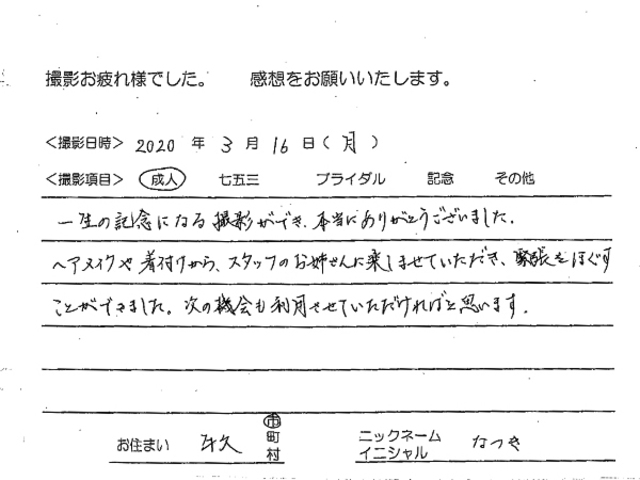 撮影お疲れ様でした。 感想をお願いいたします。
<撮影日時> 2020 年 3 月 16 日(月)
<撮影項目> 成人 七五三 ブライダル 記念 その他
一生の記念になる撮影ができ、本当にありがとうございました。
ヘアメイクや着付けから、スタッフのお姉さんに楽しませていただき、緊張をほぐす
ことができました。次の機会も利用させていただければと思います。
お住まい 牛久 市町村
ニックネーム イニシャル なつき